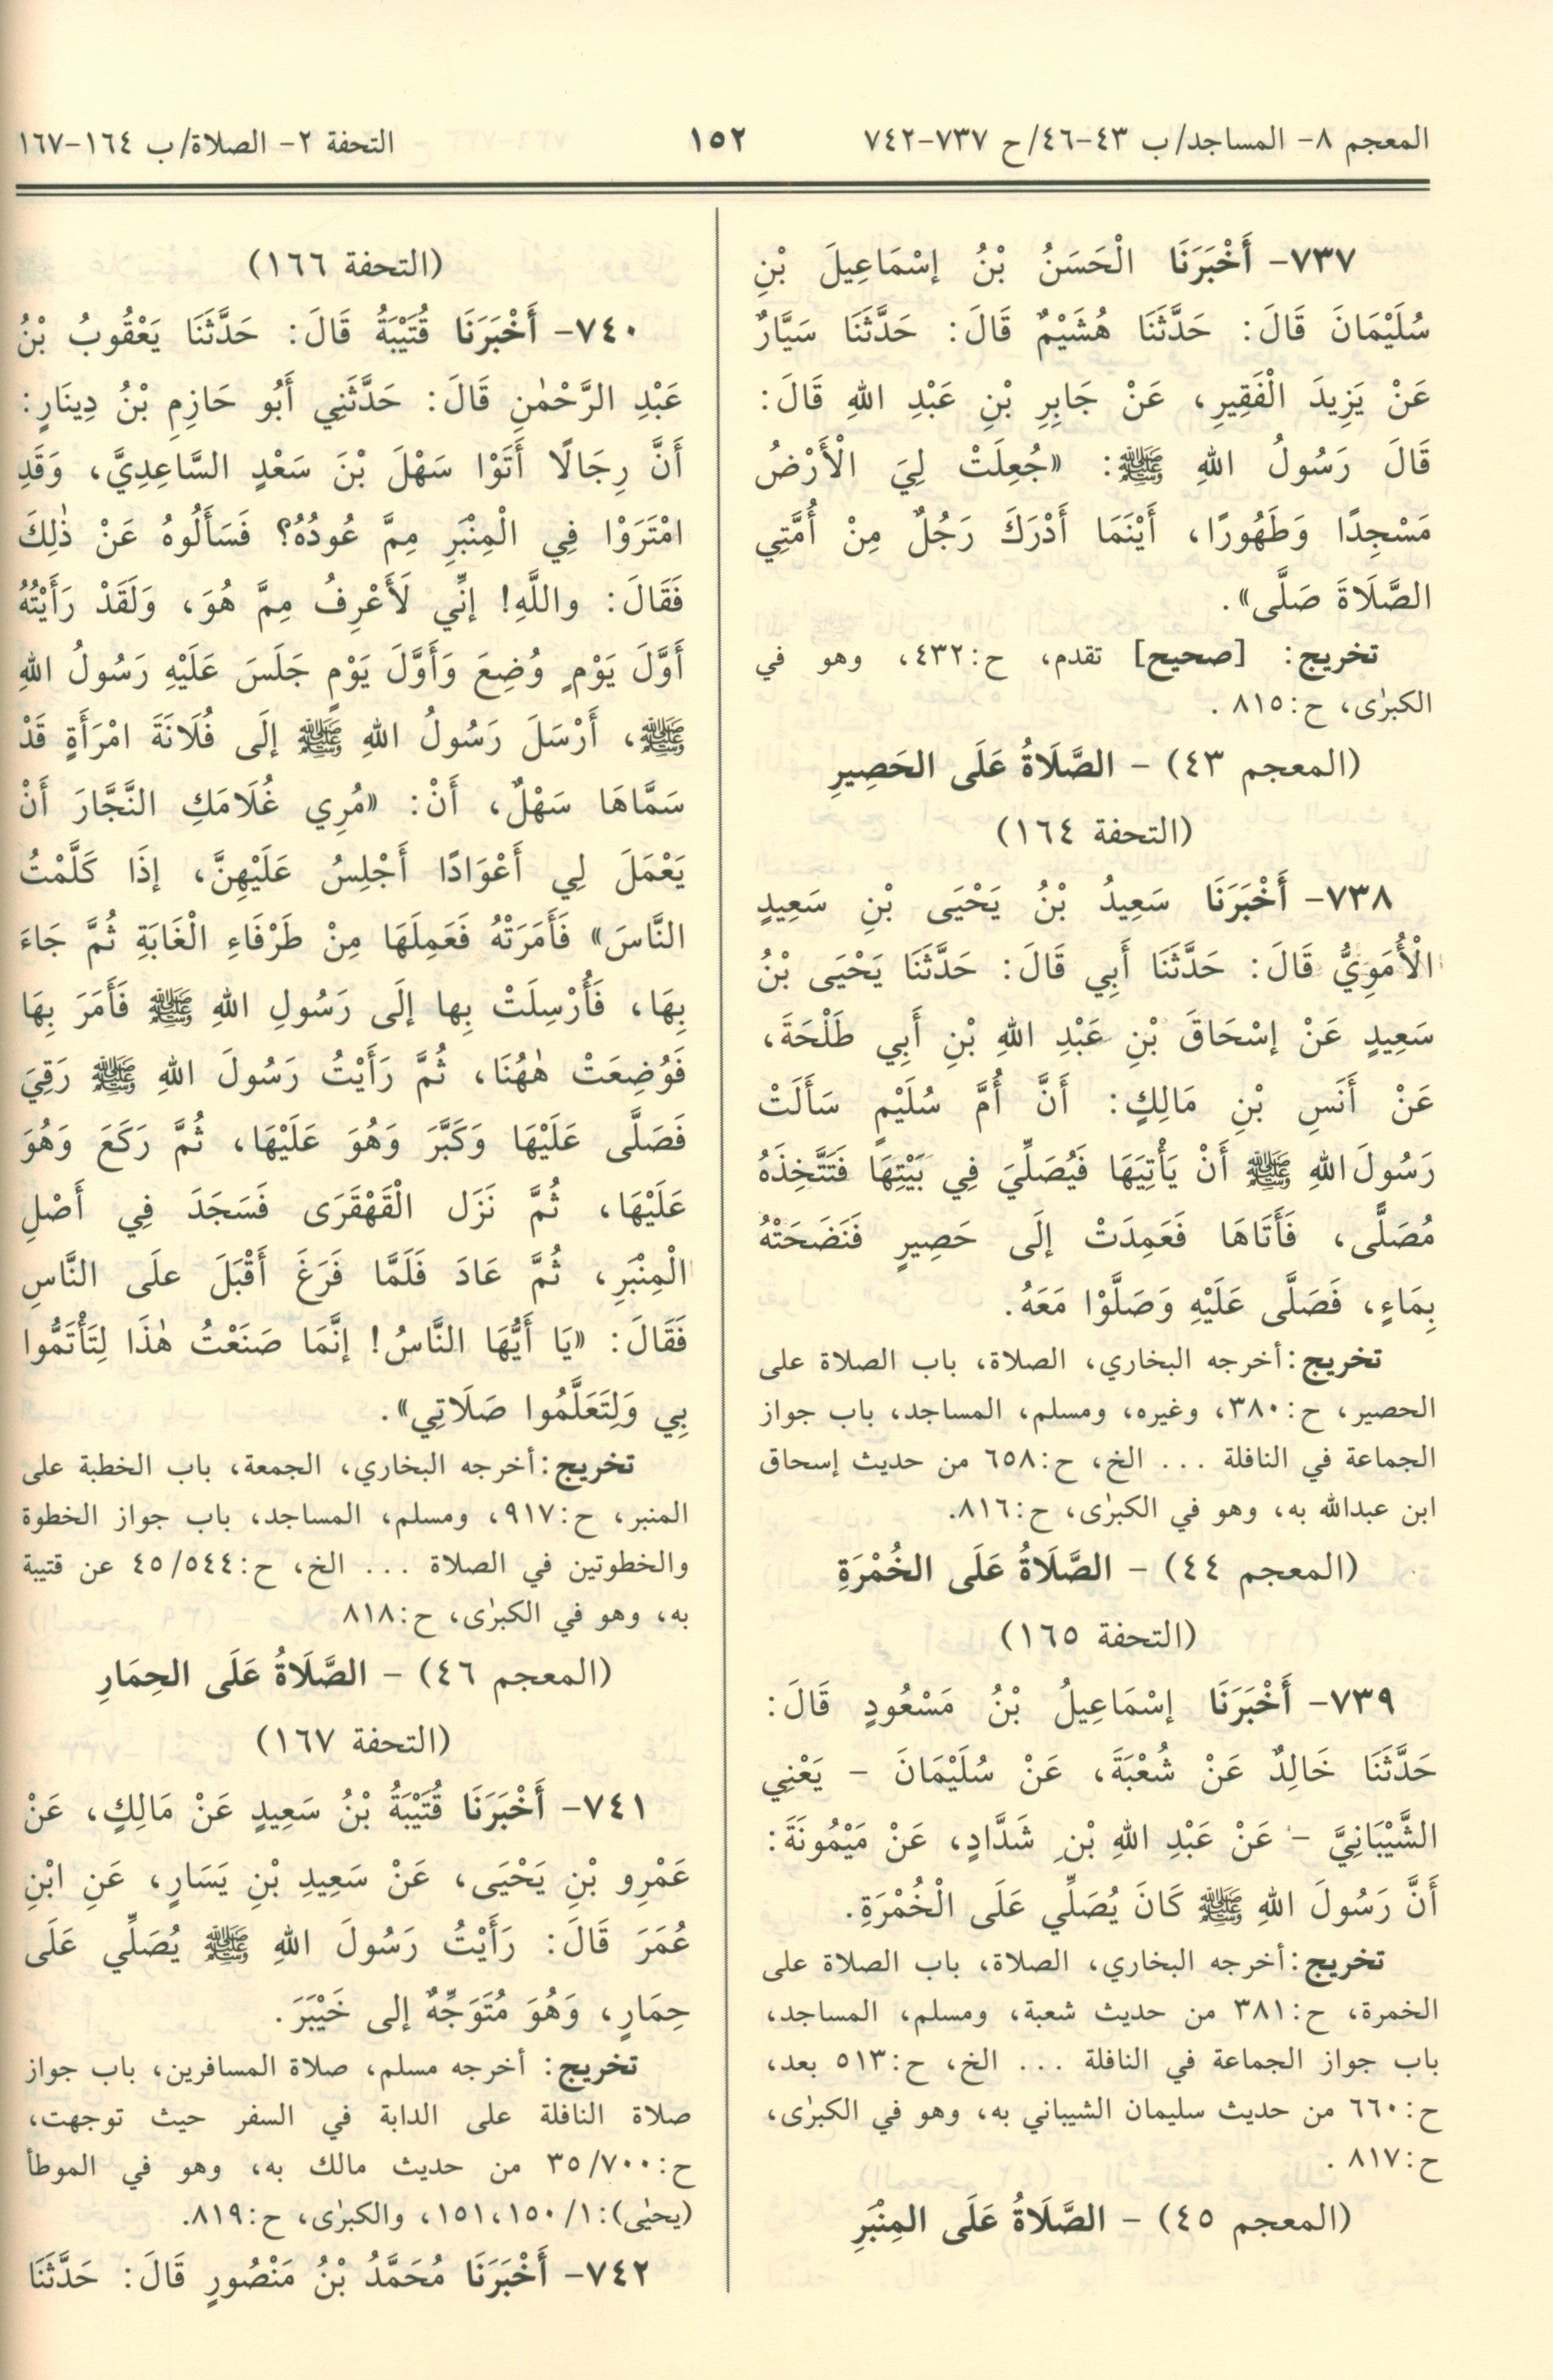 المعجم ٨- المساجد/ ب ٤٣-٤٦/ ح ٧٣٧-٧٤٢
١٥٢
التحفة ٢- الصلاة/ ب ١٦٤-١٦٧
٧٣٧- أَخْبَرَنَا الْحَسَنُ بْنُ إسْمَاعِيلَ بْنِ
سُلَيْمَانَ قَالَ: حَدَّثَنَا هُشَيْمٌ قَالَ: حَدَّثَنَا سَيَّارٌ
عَنْ يَزِيدَ الْفَقِيرِ، عَنْ جَابِرِ بْنِ عَبْدِ اللهِ قَالَ:
قَالَ رَسُولُ اللهِ ﷺ: «جُعِلَتْ لِيَ الْأَرْضُ
مَسْجِدًا وَطَهُورًا، أَيْنَمَا أَدْرَكَ رَجُلٌ مِنْ أُمَّتِي
الصَّلَاةَ صَلَّى».
تخريج: [صحيح] تقدم، ح:٤٣٢، وهو في
الكبرٰى، ح:٨١٥ .
(المعجم ٤٣) - الصَّلَاةُ عَلَى الحَصِيرِ
(التحفة ١٦٤)
٧٣٨- أَخْبَرَنَا سَعِيدُ بْنُ يَحْيَى بْنِ سَعِيدٍ
الْأُمَوِيُّ قَالَ: حَدَّثَنَا أَبِي قَالَ: حَدَّثَنَا يَحْيَى بْنُ
سَعِيدٍ عَنْ إسْحَاقَ بْنِ عَبْدِ اللهِ بْنِ أَبِي طَلْحَةَ،
عَنْ أَنَسِ بْنِ مَالِكٍ: أَنَّ أُمَّ سُلَيْمٍ سَأَلَتْ
رَسُولَ اللهِ ﷺ أَنْ يَأْتِيَهَا فَيُصَلِّيَ فِي بَيْتِهَا فَتَتَّخِذَهُ
مُصَلًّى، فَأَتَاهَا فَعَمِدَتْ إلَى حَصِيرٍ فَنَضَحَتْهُ
بِمَاءٍ، فَصَلَّى عَلَيْهِ وَصَلَّوْا مَعَهُ.
تخريج: أخرجه البخاري، الصلاة، باب الصلاة على
الحصير، ح:٣٨٠، وغيره، ومسلم، المساجد، باب جواز
الجماعة في النافلة ... الخ، ح:٦٥٨ من حديث إسحاق
ابن عبدالله به، وهو في الكبرٰى، ح:٨١٦.
(المعجم ٤٤) - الصَّلَاةُ عَلَى الخُمْرَةِ
(التحفة ١٦٥)
٧٣٩- أَخْبَرَنَا إسْمَاعِيلُ بْنُ مَسْعُودٍ قَالَ:
حَدَّثَنَا خَالِدٌ عَنْ شُعْبَةَ، عَنْ سُلَيْمَانَ - يَعْنِي
الشَّيْبَانِيَّ - عَنْ عَبْدِ اللهِ بْنِ شَدَّادٍ، عَنْ مَيْمُونَةَ:
أَنَّ رَسُولَ اللهِ ﷺ كَانَ يُصَلِّي عَلَى الْخُمْرَةِ.
تخريج: أخرجه البخاري، الصلاة، باب الصلاة على
الخمرة، ح:٣٨١ من حديث شعبة، ومسلم، المساجد،
باب جواز الجماعة في النافلة ... الخ، ح:٥١٣ بعد،
ح:٦٦٠ من حديث سليمان الشيباني به، وهو في الكبرٰى،
ح:٨١٧ .
(المعجم ٤٥) - الصَّلَاةُ عَلَى المِنْبَرِ
(التحفة ١٦٦)
٧٤٠- أَخْبَرَنَا قُتَيْبَةُ قَالَ: حَدَّثَنَا يَعْقُوبُ بْنُ
عَبْدِ الرَّحْمٰنِ قَالَ: حَدَّثَنِي أَبُو حَازِمِ بْنُ دِينَارٍ:
أَنَّ رِجَالًا أَتَوْا سَهْلَ بْنَ سَعْدٍ السَّاعِدِيَّ، وَقَدِ
امْتَرَوْا فِي الْمِنْبَرِ مِمَّ عُودُهُ؟ فَسَأَلُوهُ عَنْ ذٰلِكَ
فَقَالَ: واللَّهِ! إنِّي لَأَعْرِفُ مِمَّ هُوَ، وَلَقَدْ رَأَيْتُهُ
أَوَّلَ يَوْمٍ وُضِعَ وَأَوَّلَ يَوْمٍ جَلَسَ عَلَيْهِ رَسُولُ اللهِ
ﷺ، أَرْسَلَ رَسُولُ اللهِ ﷺ إلَى فُلَانَةَ امْرَأَةٍ قَدْ
سَمَّاهَا سَهْلٌ، أَنْ: «مُرِي غُلَامَكِ النَّجَّارَ أَنْ
يَعْمَلَ لِي أَعْوَادًا أَجْلِسُ عَلَيْهِنَّ، إذَا كَلَّمْتُ
النَّاسَ» فَأَمَرَتْهُ فَعَمِلَهَا مِنْ طَرْفَاءِ الْغَابَةِ ثُمَّ جَاءَ
بِهَا، فَأُرْسِلَتْ بِها إلَى رَسُولِ اللهِ ﷺ فَأَمَرَ بِهَا
فَوُضِعَتْ هٰهُنَا، ثُمَّ رَأَيْتُ رَسُولَ اللهِ ﷺ رَقِيَ
فَصَلَّى عَلَيْهَا وَكَبَّرَ وَهُوَ عَلَيْهَا، ثُمَّ رَكَعَ وَهُوَ
عَلَيْهَا، ثُمَّ نَزَل الْقَهْقَرَى فَسَجَدَ فِي أَصْلِ
الْمِنْبَرِ، ثُمَّ عَادَ فَلَمَّا فَرَغَ أَقْبَلَ علَى النَّاسِ
فَقَالَ: «يَا أَيُّهَا النَّاسُ! إنَّمَا صَنَعْتُ هٰذَا لِتَأْتَمُّوا
بِي وَلِتَعَلَّمُوا صَلَاتِي».
تخريج: أخرجه البخاري، الجمعة، باب الخطبة على
المنبر، ح:٩١٧، ومسلم، المساجد، باب جواز الخطوة
والخطوتين في الصلاة ... الخ، ح:٤٥/٥٤٤ عن قتيبة
به، وهو في الكبرٰى، ح:٨١٨
(المعجم ٤٦) - الصَّلَاةُ عَلَى الحِمَارِ
(التحفة ١٦٧)
٧٤١- أَخْبَرَنَا قُتَيْبَةُ بْنُ سَعِيدٍ عَنْ مَالِكٍ، عَنْ
عَمْرِو بْنِ يَحْيَى، عَنْ سَعِيدِ بْنِ يَسَارٍ، عَنِ ابْنِ
عُمَرَ قَالَ: رَأَيْتُ رَسُولَ اللهِ ﷺ يُصَلِّي عَلَى
حِمَارٍ، وَهُوَ مُتَوَجِّهٌ إلى خَيْبَرَ.
تخريج: أخرجه مسلم، صلاة المسافرين، باب جواز
صلاة النافلة على الدابة في السفر حيث توجهت،
ح:٣٥/٧٠٠ من حديث مالك به، وهو في الموطأ
(يحيٰى):١/ ١٥٠،١٥١، والكبرٰى، ح:٨١٩.
٧٤٢- أَخْبَرَنَا مُحَمَّدُ بْنُ مَنْصُورٍ قَالَ: حَدَّثَنَا